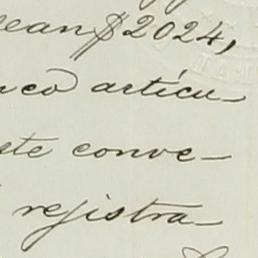 sean $2024,
nco articu-
ste conve-
registra-